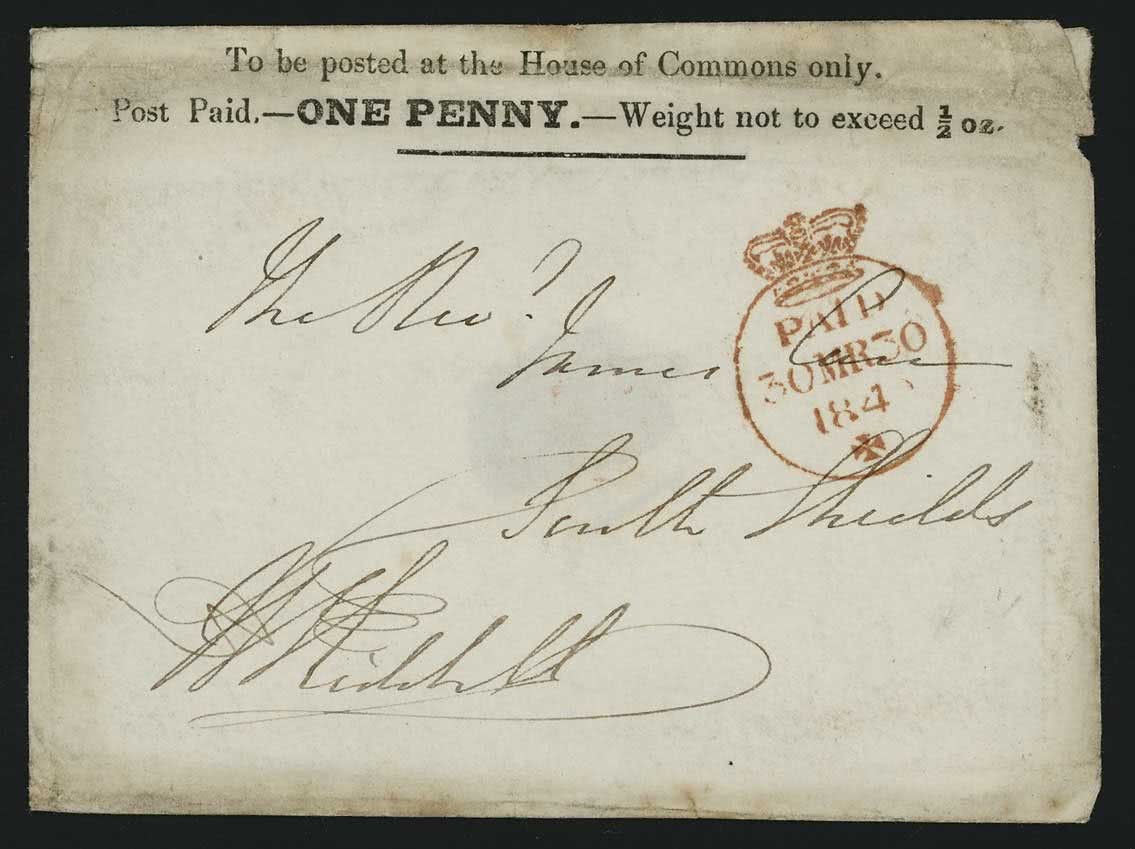 To be posted at the House of Commons only.
Post Paid.—ONE PENNY.—Weight not to exceed ½ oz.
The Revd.
James Carr
South Shields
PAID
30MR30
184